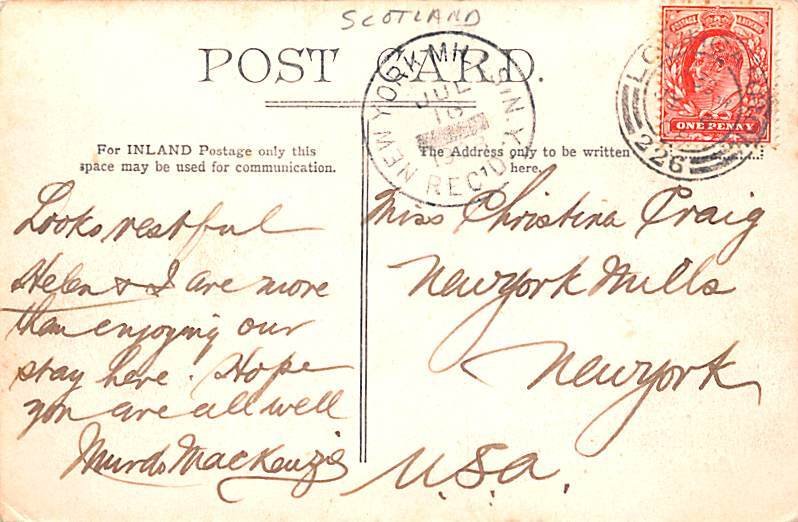 SCOTLAND
POST CARD.
For INLAND Postage only this
space may be used for communication.
The Address only to be written
here.
NEW YORK MILLS N.Y.
JUL
REC'D
226
POSTAGE
ONE PENNY
Looks restful
Helen & I are more
than enjoying our
stay here. Hope
you are all well
Murdo MacKenzie
Miss Christina Craig
Newyork Mills
Newyork
U.S.A.